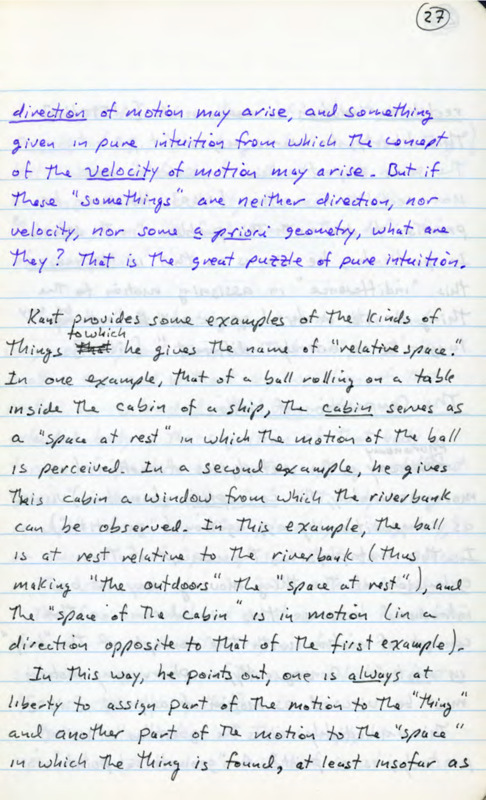 27
direction of motion may arise, and something
given in pure intuition from which the concept
of the velocity of motion may arise. But if
these "somethings" are neither direction, nor
velocity, nor some a priori geometry, what are
they? That is the great puzzle of pure intuition.
Kant provides some examples of the kinds of
to which
things that he gives the name of "relative space."
In one example, that of a ball rolling on a table
inside the cabin of a ship, the cabin serves as
a "space at rest" in which the motion of the ball
is perceived. In a second example, he gives
this cabin a window from which the riverbank
can be observed. In this example, the ball
is at rest relative to the riverbank (thus
making "the outdoors" the "space at rest"), and
the "space of the cabin" is in motion (in a
direction opposite to that of the first example).
In this way, he points out, one is always at
liberty to assign part of the motion to the "thing"
and another part of the motion to the "space"
in which the thing is found, at least insofar as